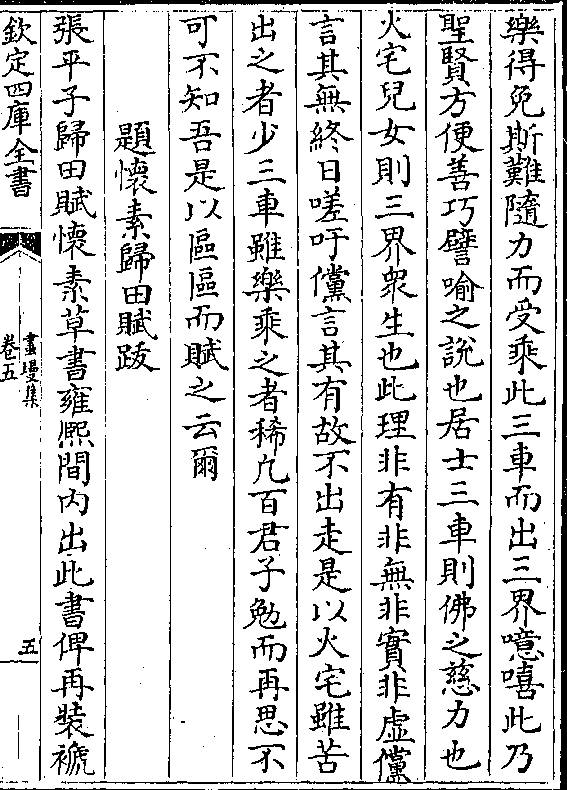 樂得免斯難隨力而受乘此三車而出三界噫嘻此乃
聖賢方便善巧譬喻之說也居士三車則佛之慈力也
火宅兒女則三界衆生也此理非有非無非實非虛儻
言其無終日嗟吁儻言其有故不出走是以火宅雖苦
出之者少三車雖樂乘之者稀凡百君子勉而再思不
可不知吾是以區區而賦之云爾
題懷素歸田賦跋
張平子歸田賦懷素草書雍熈間内出此書俾再裝褫
欽定四庫全書
畫墁集
卷五
五